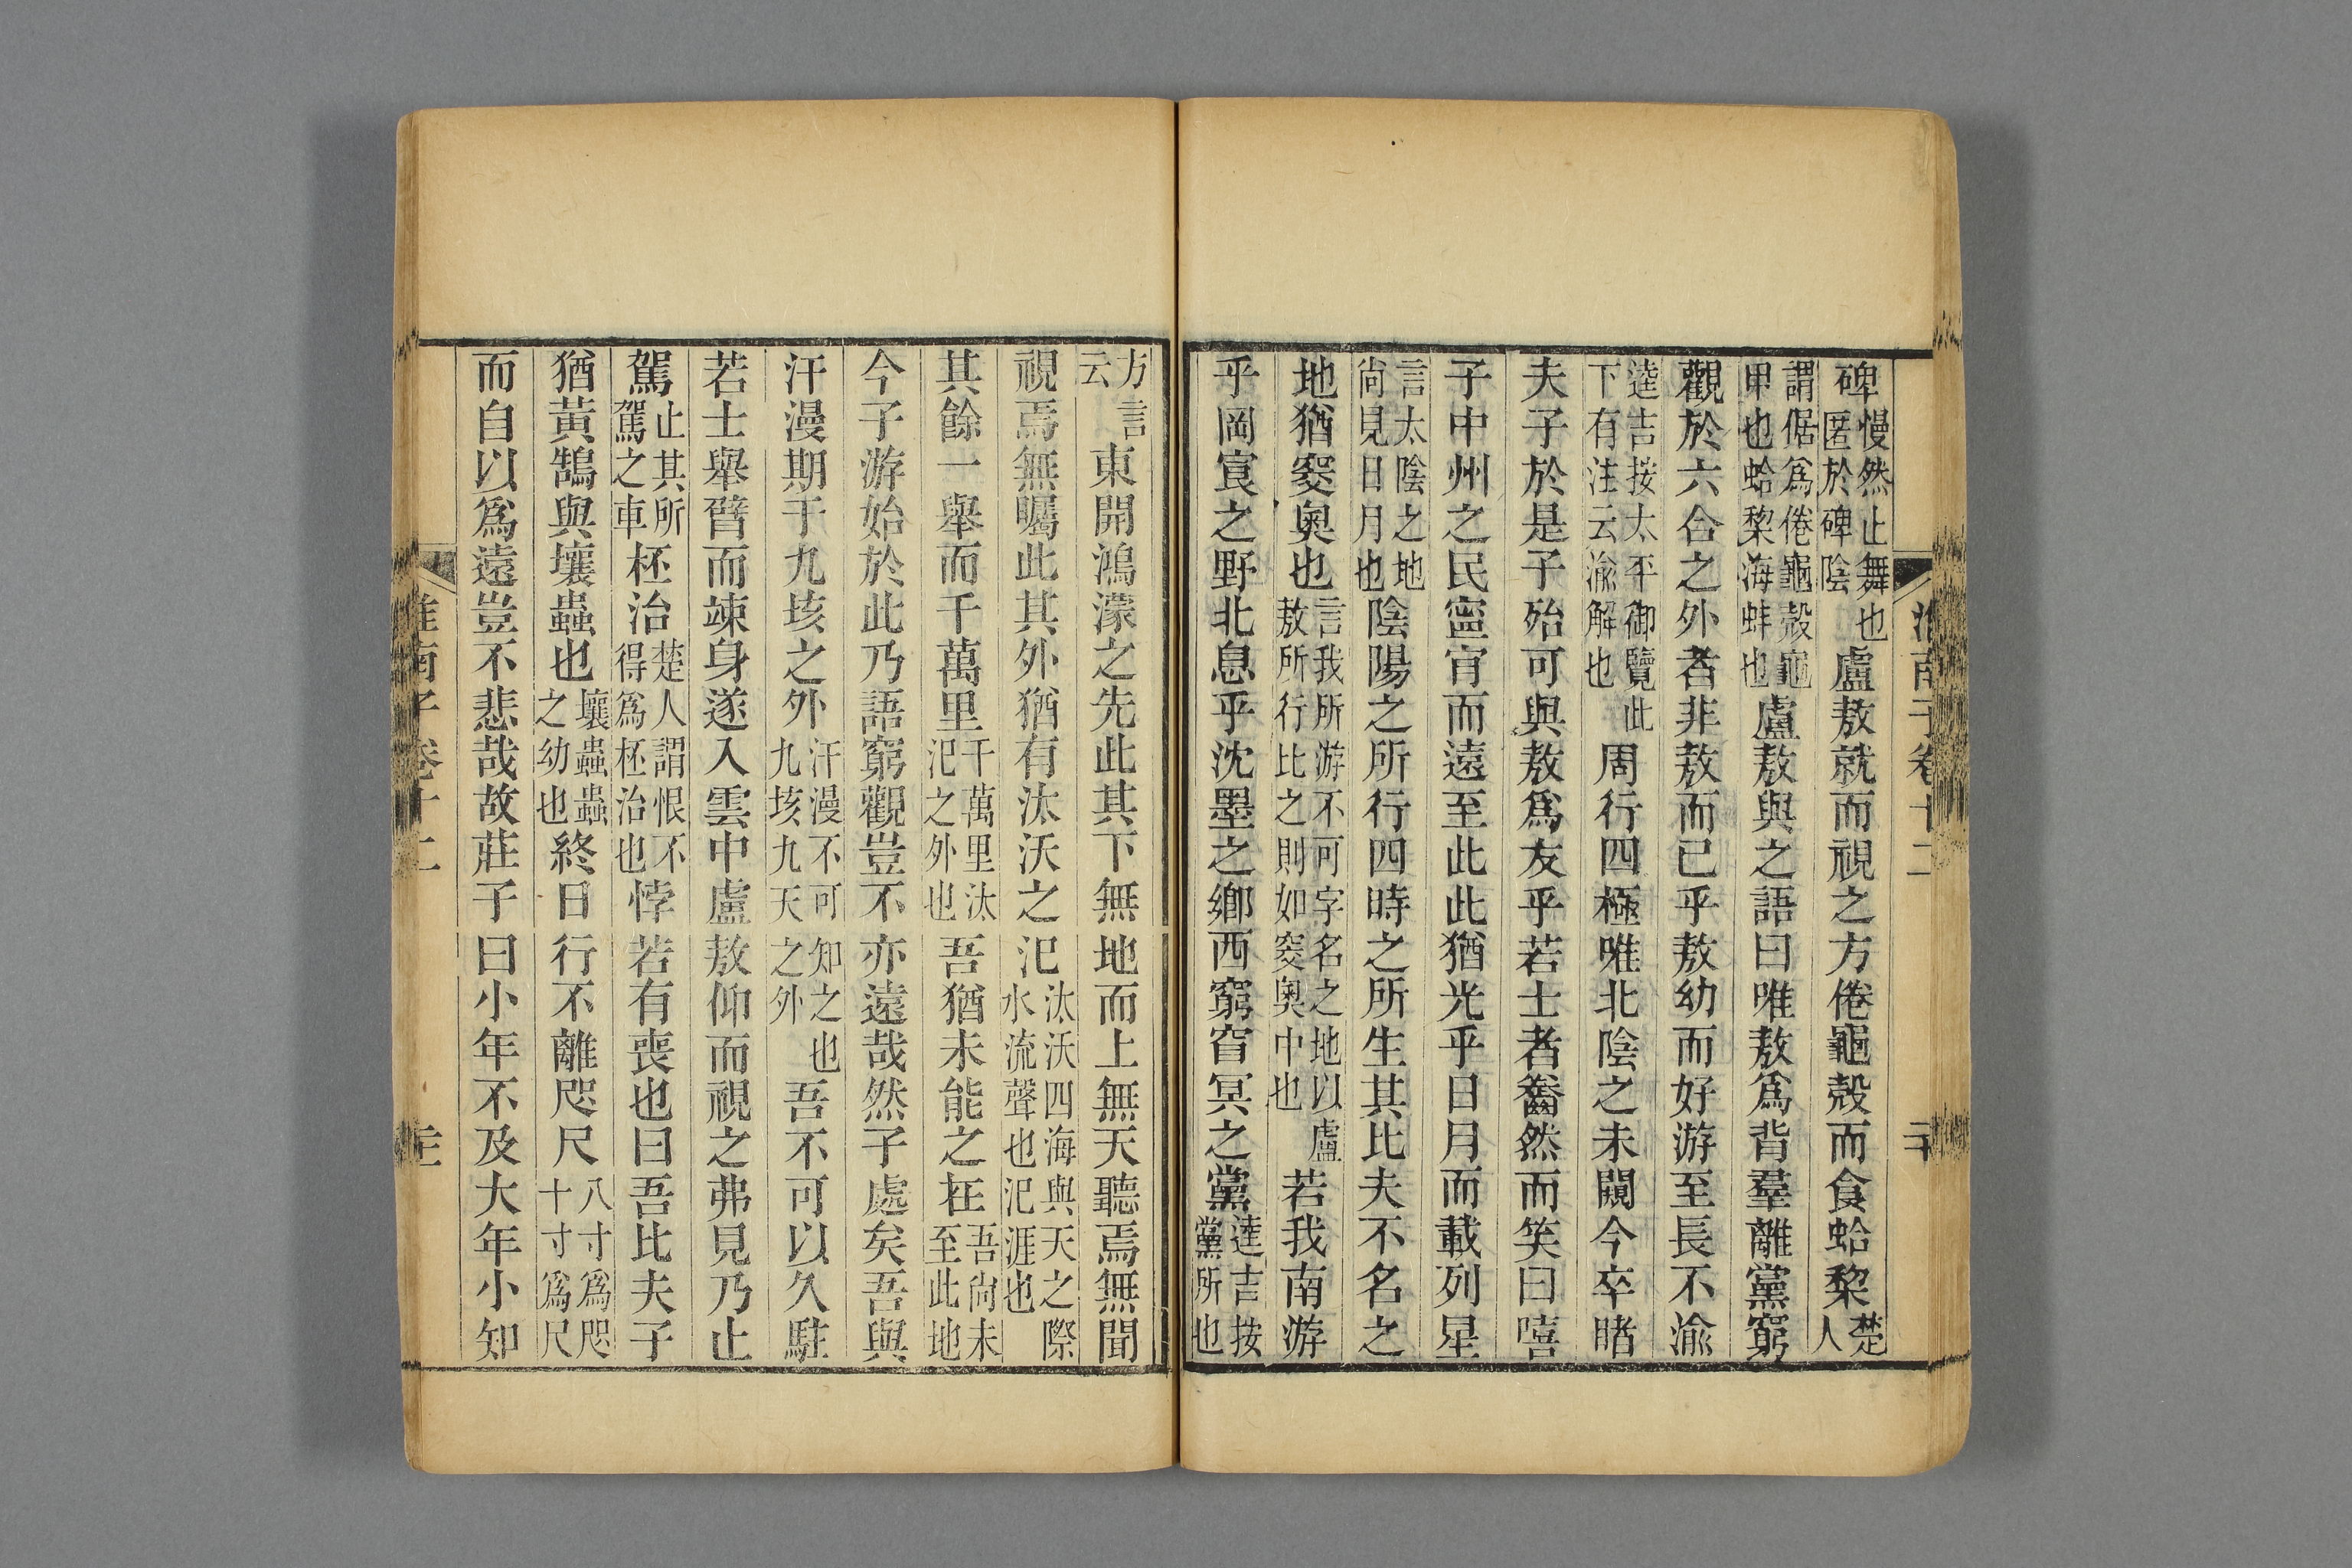 淮南子卷十二
碑慢然止舞也匿於碑陰盧敖就而視之方倦龜殼而食蛤棃楚人
謂倨爲倦龜殼龜甲也蛤棃海蚌也盧敖與之語曰唯敖爲背羣離黨窮
觀於六合之外者非敖而已乎敖幼而好游至長不渝
逵吉按太平御覽此下有注云渝解也周行四極唯北陰之未闚今卒睹
夫子於是子殆可與敖爲友乎若士者齤然而笑曰嘻
子中州之民寍宵而遠至此此猶光乎日月而載列星
言太陰之地尙見日月也陰陽之所行四時之所生其比夫不名之
地猶窔奧也言我所游不可字名之地以盧敖所行比之則如窔奧中也若我南游
乎岡㝗之野北息乎沈墨之鄉西窮窅冥之黨逵吉按黨所也
方言云東開鴻濛之先此其下無地而上無天聽焉無聞
視焉無矚此其外猶有汰沃之汜汰沃四海與天之際水流聲也汜涯也
其餘一舉而千萬里千萬里汰汜之外也吾猶未能之在吾尙未至此地
今子游始於此乃語窮觀豈不亦遠哉然子處矣吾與
汗漫期于九垓之外汗漫不可知之也九垓九天之外吾不可以久駐
若士舉臂而竦身遂入雲中盧敖仰而視之弗見乃止
駕止其所駕之車柸治楚人謂恨不得爲柸治也悖若有喪也曰吾比夫子
猶黃鵠與壤蟲也壤蟲蟲之幼也終日行不離咫尺八寸爲咫十寸爲尺
而自以爲遠豈不悲哉故莊子曰小年不及大年小知
淮南子卷十二